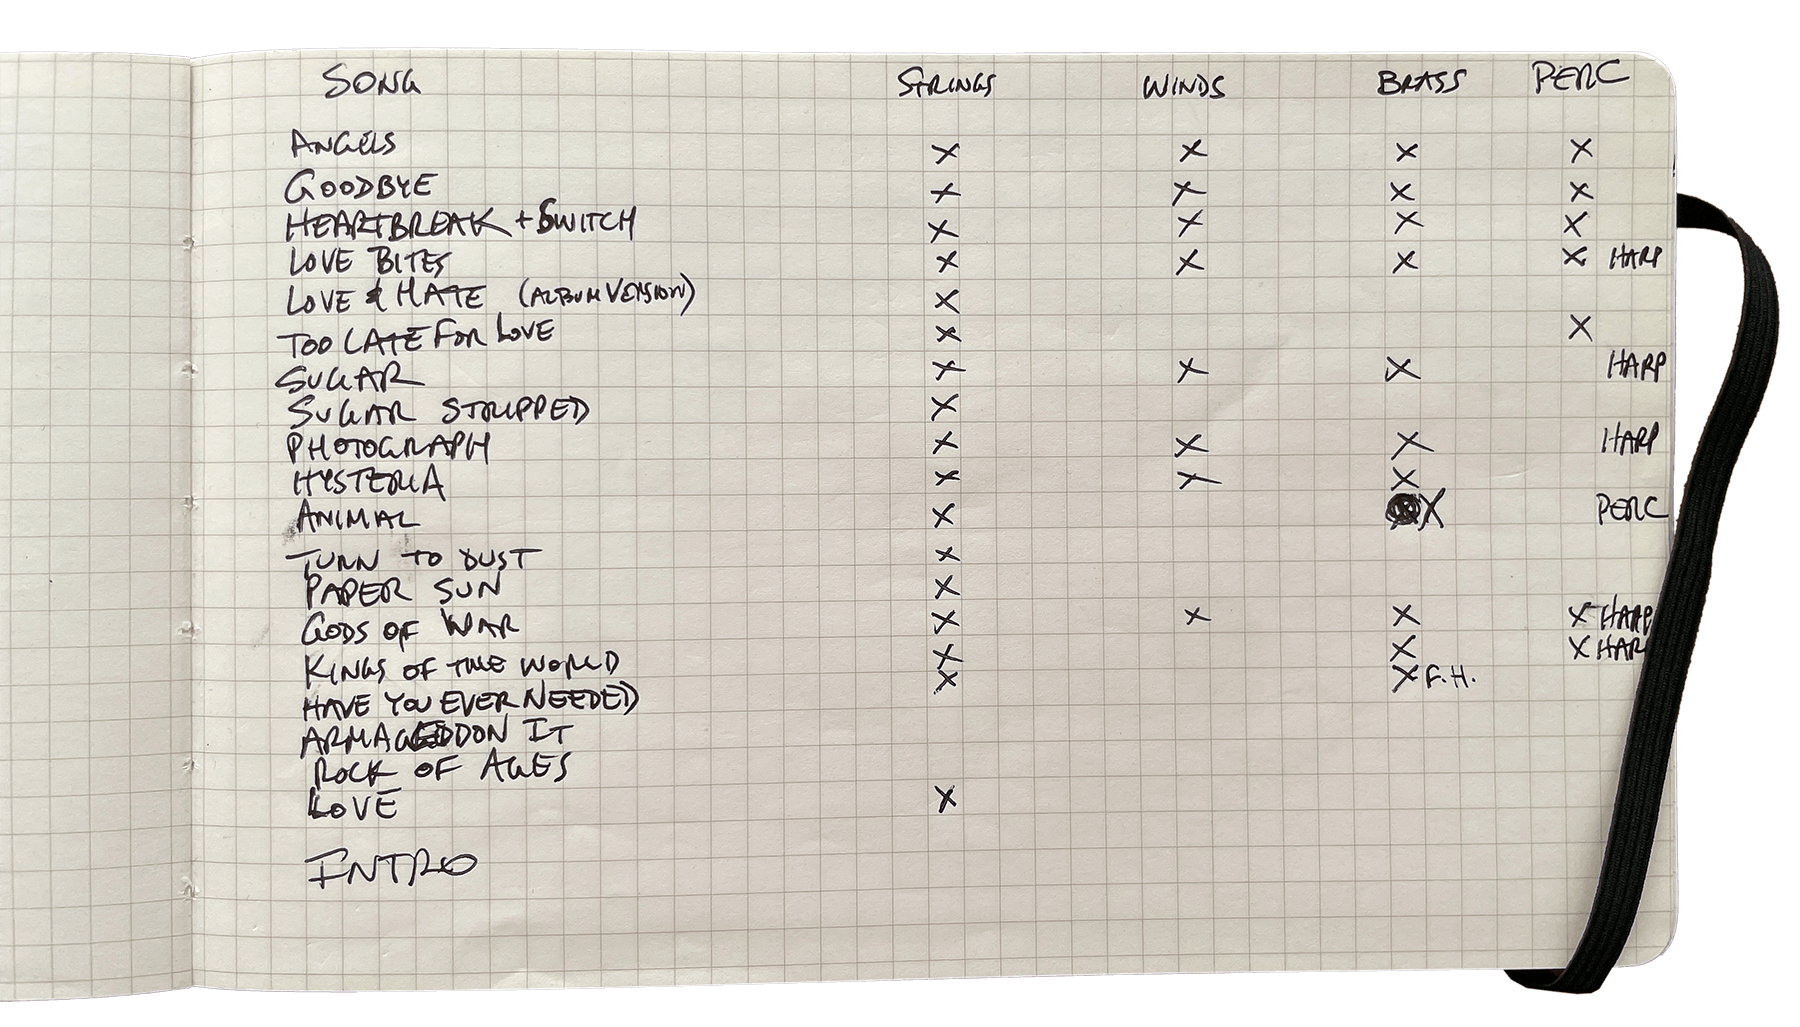 SONG STRINGS WINDS BRASS PERC
ANGELS X X X X
GOODBYE X X X X
HEARTBREAK + SWITCH X X X X
LOVE BITES X X X X HARP
LOVE & HATE (ALBUM VERSION) X
TOO LATE FOR LOVE X X
SUGAR X X X HARP
SUGAR STRIPPED X
PHOTOGRAPH X X X HARP
HYSTERIA X X X
ANIMAL X X PERC
TURN TO DUST X
PAPER SUN X
GODS OF WAR X X X X HARP
KINGS OF THE WORLD X X X HARP
HAVE YOU EVER NEEDED X X F.H.
ARMAGEDDON IT
ROCK OF AGES
LOVE X
INTRO